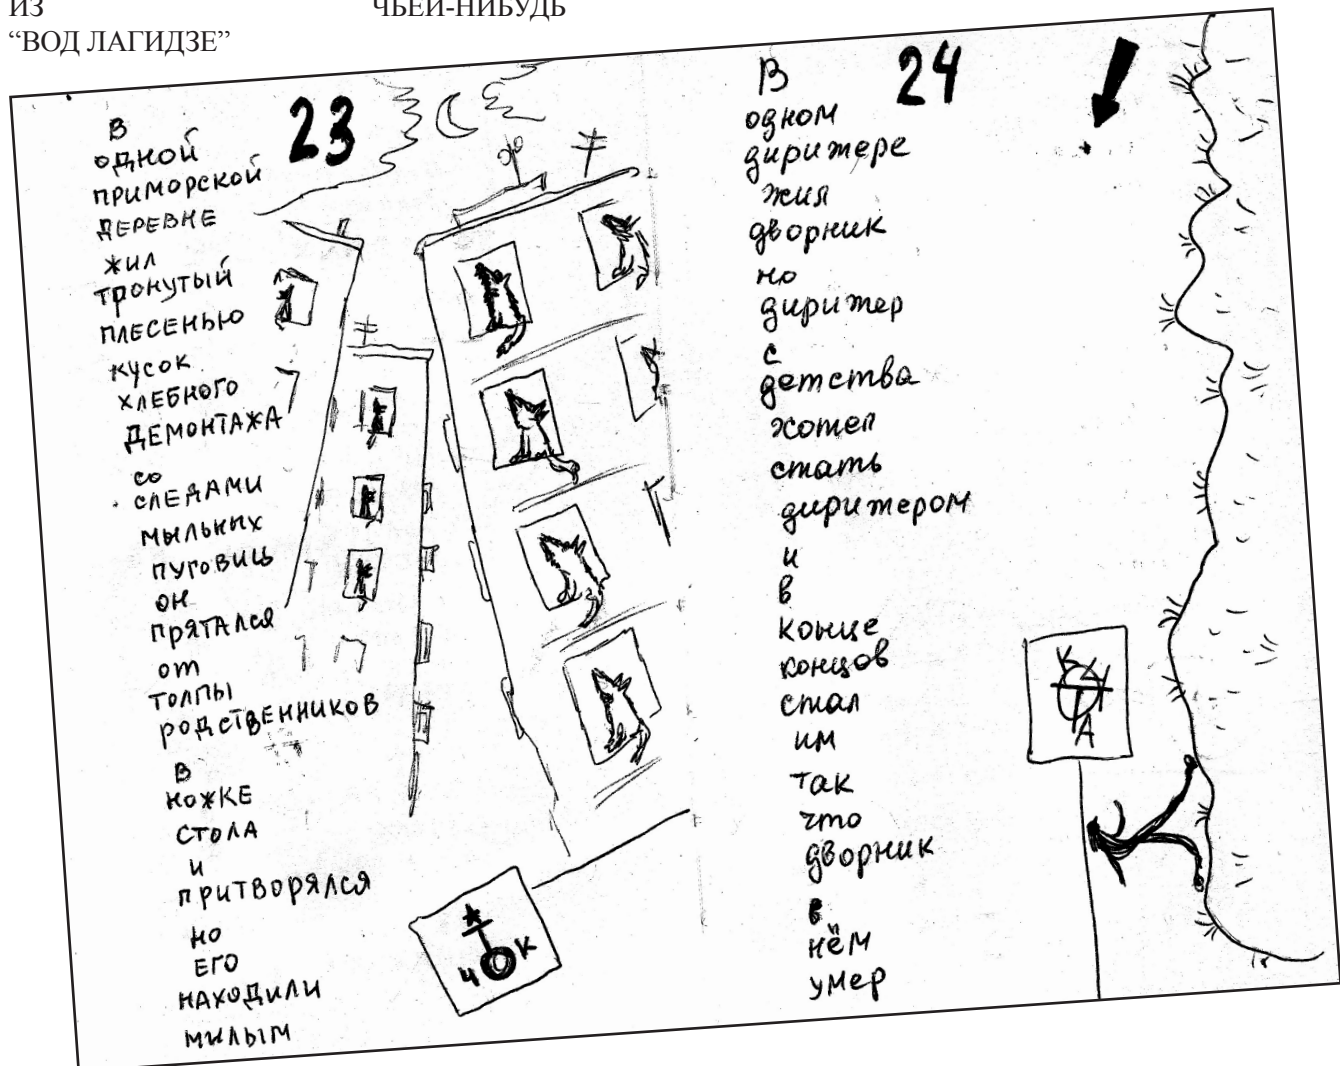 ИЗ
“ВОД ЛАГИДЗЕ”
ЧЬЕЙ-НИБУДЬ
23
В
ОДНОЙ
ПРИМОРСКОЙ
ДЕРЕВНЕ
ЖИЛ
ТРОНУТЫЙ
ПЛЕСЕНЬЮ
КУСОК
ХЛЕБНОГО
ДЕМОНТАЖА
СО
СЛЕДАМИ
МЫЛЬНЫХ
ПУГОВИЦ
ОН
ПРЯТАЛСЯ
ОТ
ТОЛПЫ
РОДСТВЕННИКОВ
В
НОЖКЕ
СТОЛА
И
ПРИТВОРЯЛСЯ
НО
ЕГО
НАХОДИЛИ
МИЛЫМ
Ч К
24
В
одном
дирижере
жил
дворник
но
дирижер
с
детства
хотел
стать
дирижером
и
в
конце
концов
стал
им
так
что
дворник
в
нём
умер